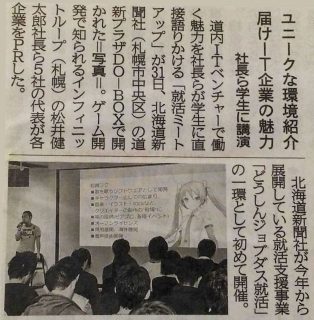 ユニークな環境紹介
届けIT企業の魅力
社長ら学生に講演
道内ITベンチャーで働
く魅力を社長らが学生に直
接語りかける「就活ミート
アップ」が31日、北海道新
聞社(札幌市中央区)の道
新プラザDO-BOXで開
かれた=写真=。ゲーム開
発で知られるインフィニッ
トループ(札幌)の松井健
太郎社長ら5社の代表が各
企業をPRした。
北海道新聞社が今年から
展開している就活支援事業
「どうしんジョブダス就活」
の一環として初めて開催。
初音ミク